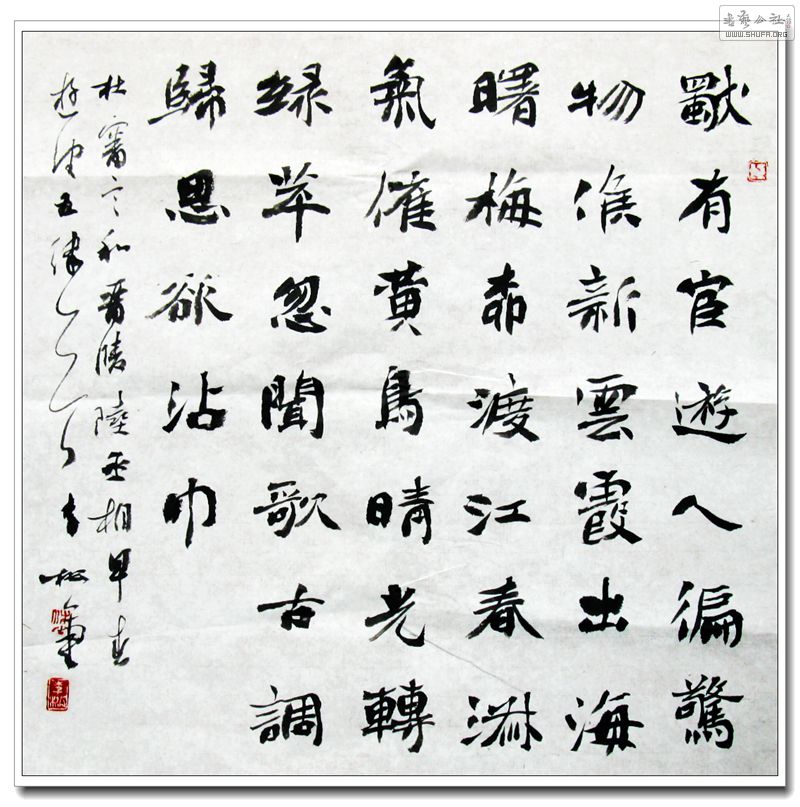 獨有宦遊人偏驚
物候新雲霞出海
曙梅柳渡江春淑
氣催黃鳥晴光轉
綠苹忽聞歌古調
歸思欲沾巾
杜審言和晉陵陸丞相早春
遊望五律一首 李松
書藝公社
WWW.SHUFA.ORG